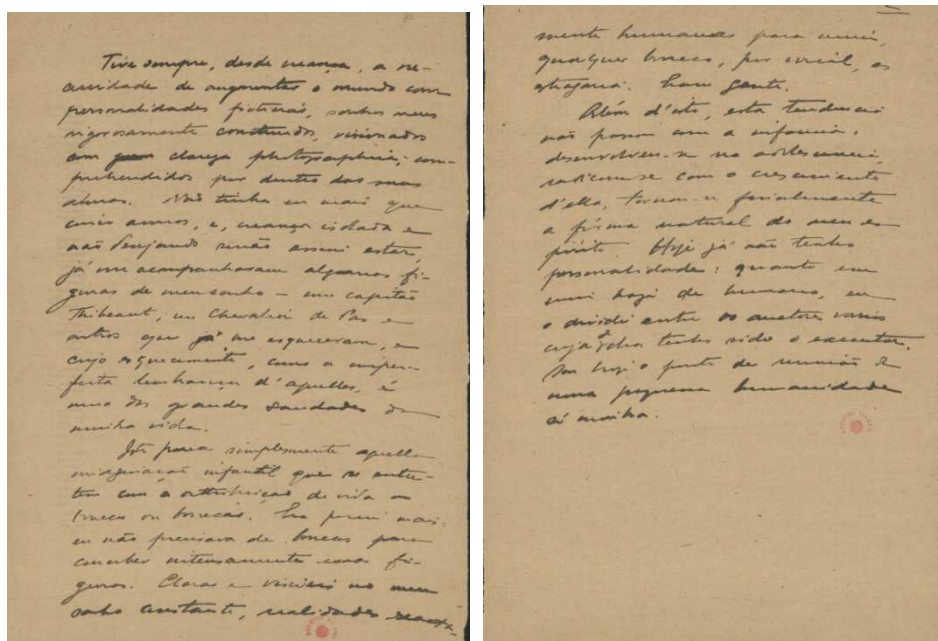 Tive sempre, desde creança, a ne-
cessidade de augmentar o mundo com
personalidades ficticias, sonhos meus
rigorosamente construidos, visionados
com clareza photographica, com-
prehendidos por dentro das suas
almas. Não tinha eu mais que
cinco annos, e, creança isolada e
não desejando senão assim estar,
já me acompanhavam algumas fi-
guras de meu sonho — um capitão
Thibeaut, um Chevalier de Pas e
outros que já me esqueceram, e
cujo esquecimento, como a imper-
feita lembrança d'aquelles, é
uma das grandes saudades da
minha vida.
Isto parece simplesmente aquella
imaginação infantil que se entre-
tem com a attribuição de vida a
bonecos ou bonecas. Era porém mais:
eu não precisava de bonecas para
conceber intensamente essas fi-
guras. Claras e visiveis no meu
sonho constante, realidades exacta-
mente humanas para mim,
qualquer boneco, por irreal, as
estragaria. Eram gente.
Além d'isto, esta tendencia
não passou com a infancia,
desenvolveu-se na adolescencia,
radicou-se com o crescimento
d'ella, tornou-se finalmente
a fórma natural do meu es-
pirito. Hoje já não tenho
personalidade: quanto em
mim haja de humano, eu
o dividi entre os auctores varios
de cuja obra tenho sido o executor.
Sou hoje o ponto de reunião de
uma pequena humanidade
só minha.